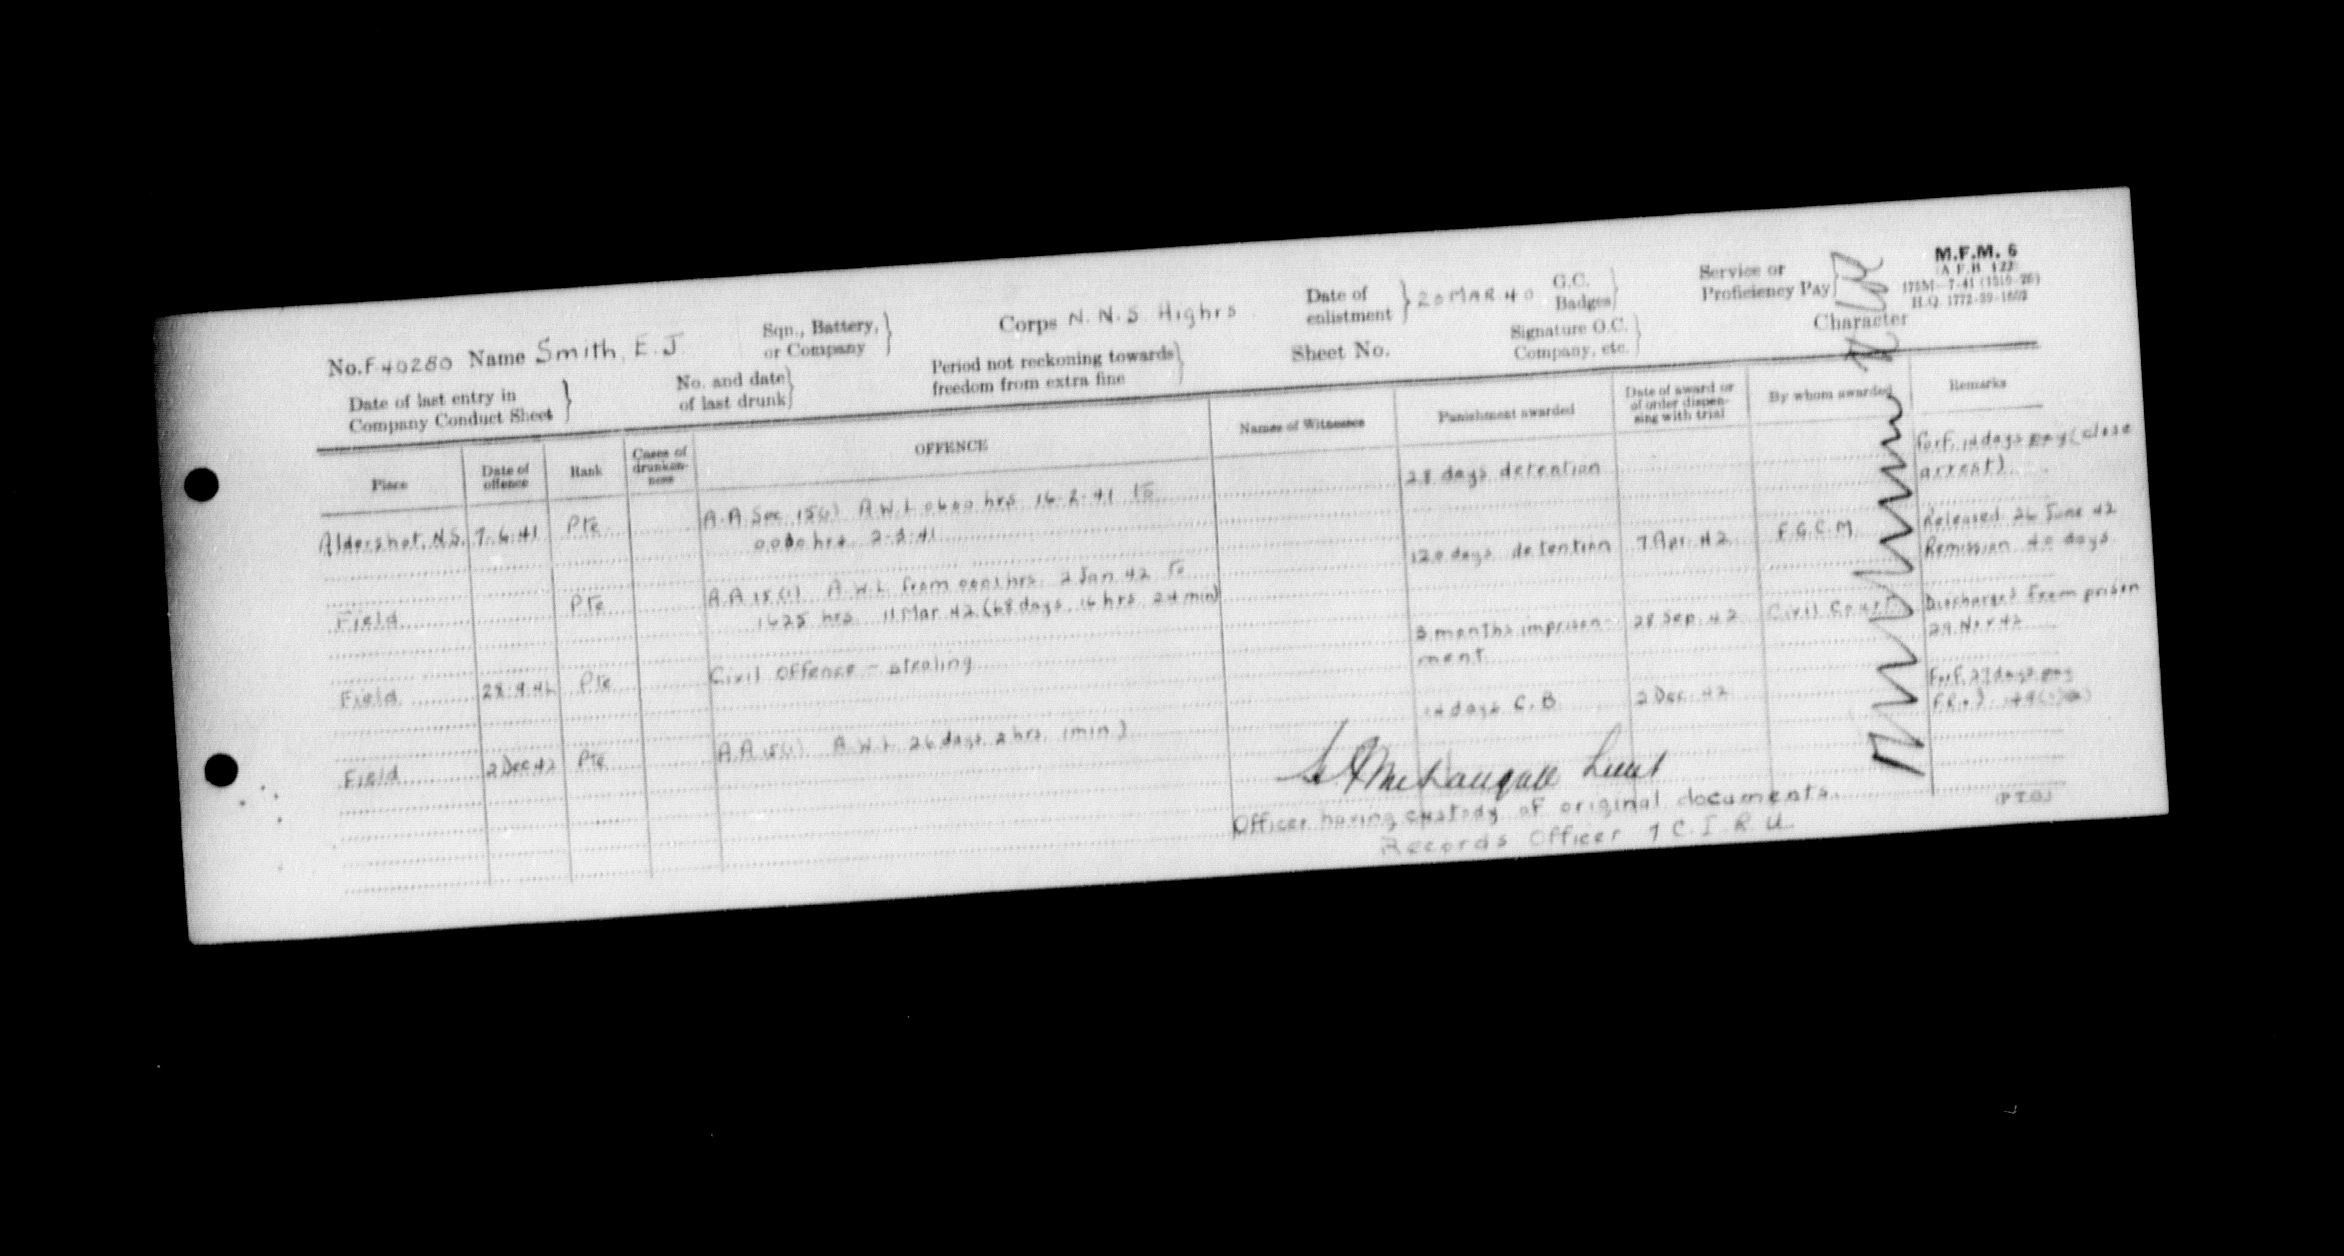 M.F.M. 6
(A.F.B. 122)
175M-7-41
H.Q. 1772-39-1602
No. F 40280 Name Smith, E. J
Sqn., Battery, or Company }
Corps N. N. S Highrs
Date of enlistment } 20 MAR 40
G.C. Badges }
Service or Proficiency Pay }
Date of last entry in Company Conduct Sheet }
No. and date of last drunk }
Period not reckoning towards freedom from extra fine }
Sheet No.
Signature O.C. Company, etc. }
Character
Place
Date of offence
Rank
Cases of drunkenness
OFFENCE
Names of Witnesses
Punishment awarded
Date of award or of order dispensing with trial
By whom awarded
Remarks
Aldershot, N.S. 7-6-41 Pte A.A Sec 15(1) A.W.L 0600 hrs 16-2-41 to 28 days detention Forf. 14 days pay (close
hrs 2-3-41 arrest)
Field Pte A.A 15(1) A.W.L from 0001 hrs 2 Jan 42 to 120 days detention 7 Apr 42 F.G.C.M. Released 26 June 42
1625 hrs 11 Mar 42 (68 days 16 hrs 24 min) Remission 40 days
Field 28-9-42 Pte Civil Offence - stealing 3 months imprison- 28 Sep 42 Civil Court Discharged from prison
ment 29 Nov 42
Field 2 Dec 42 Pte A.A 15(1) A.W.L 26 days 2 hrs 1 min) 14 days C.B 2 Dec 42 Forf. 27 days pay
Lieut
Officer having custody of original documents.
Records Officer 7 C.I.R.U.
(P.T.O.)